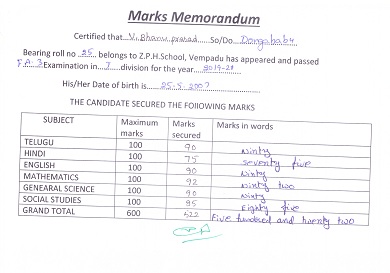 Marks Memorandum
Certified that V. Bhanu prasad So/Do Dongababu
Bearing roll no 25 belongs to Z.P.H.School, Vempadu has appeared and passed
F.A.-3 Examination in 7 division for the year 2019-20
His/Her Date of birth is 25-5-2007
THE CANDIDATE SECURED THE FOIIOWING MARKS
SUBJECT Maximum marks Marks secured Marks in words
TELUGU 100 90 Ninty
HINDI 100 75 Seventy five
ENGLISH 100 90 Ninty
MATHEMATICS 100 92 Ninty two
GENEARAL SCIENCE 100 90 Ninty
SOCIAL STUDIES 100 85 Eighty five
GRAND TOTAL 600 522 Five hundred and twenty two